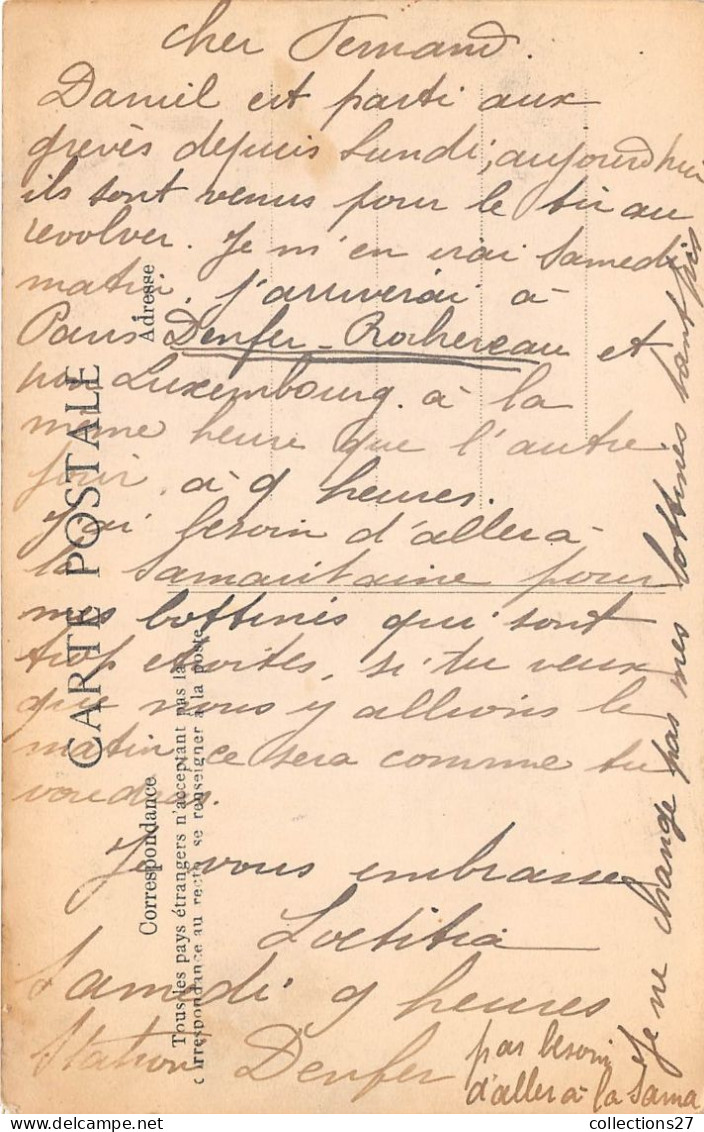 cher Fernand.
Daniel est parti aux
grevès depuis Lundi, aujourd'hui
ils sont venus pour le tir au
revolver. Je m'en irai Samedi
matin, j'arriverai à
Paris Denfer-Rochereau et
non Luxembourg. à la
même heure que l'autre
jour, à 9 heures.
J'ai besoin d'aller à
la Samaritaine pour
mes bottines qui sont
trop étroites, si tu veux
que nous y allions le
matin ce sera comme tu
voudras.
Je vous embrasse
Loetitia
Samedi 9 heures
Station Denfer
pas besoin
d'aller à la Sama
Je ne change pas mes bottines tant pis
CARTE POSTALE
Correspondance
Adresse
Tous les pays étrangers n'acceptant pas la
correspondance au recto, se renseigner à la poste
collections27